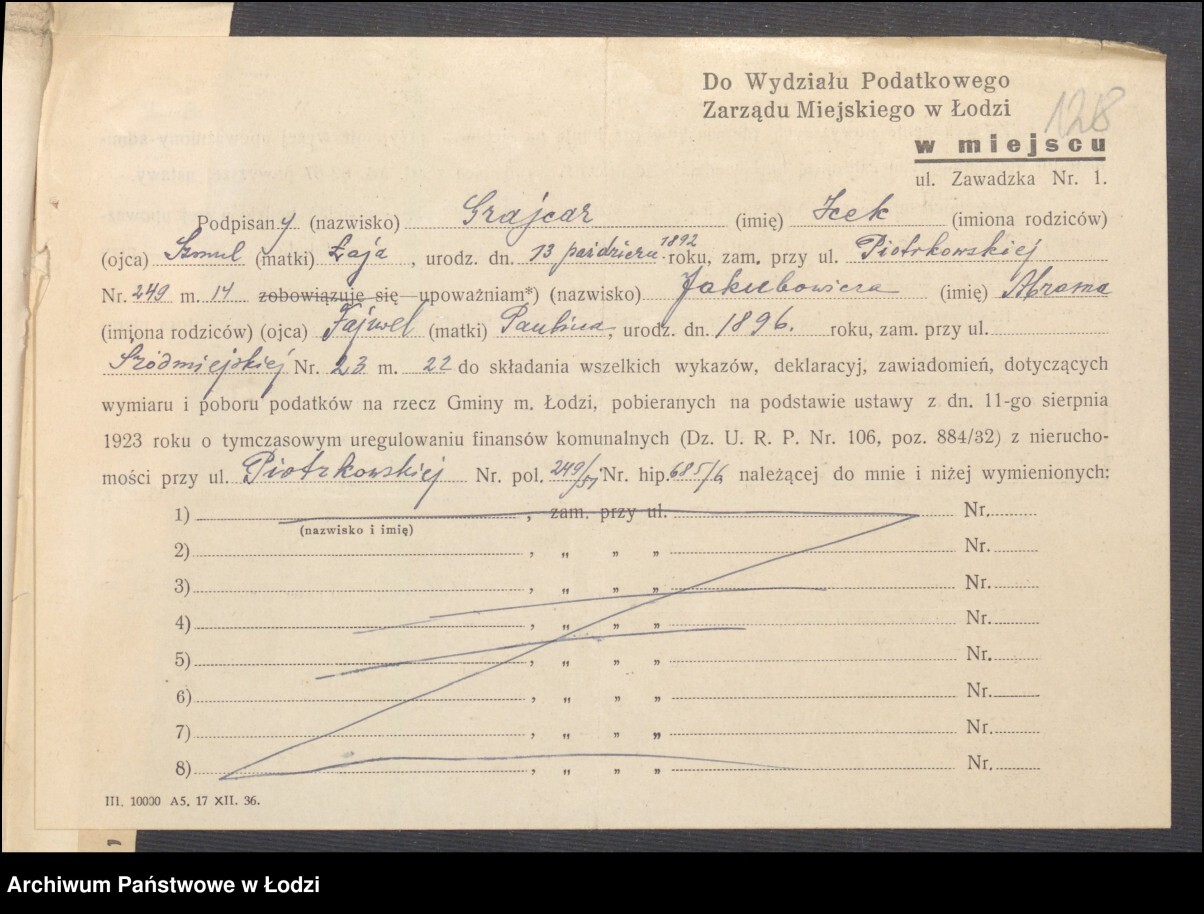 Do Wydziału Podatkowego
Zarządu Miejskiego w Łodzi
128
w miejscu
ul. Zawadzka Nr. 1.
Podpisany (nazwisko) Grajcar (imię) Icek (imiona rodziców)
(ojca) Szmul (matki) Łaja, urodz. dn. 13 paździera 1892 roku, zam. przy ul. Piotrkowskiej
Nr. 249 m. 14 zobowiązuję się upoważniam*) (nazwisko) Jakubowicza (imię) Abrama
(imiona rodziców) (ojca) Fajwel (matki) Paulina, urodz. dn. 1896. roku, zam. przy ul.
Śródmiejskiej Nr. 23 m. 22 do składania wszelkich wykazów, deklaracyj, zawiadomień, dotyczących
wymiaru i poboru podatków na rzecz Gminy m. Łodzi, pobieranych na podstawie ustawy z dn. 11-go sierpnia
1923 roku o tymczasowym uregulowaniu finansów komunalnych (Dz. U. R. P. Nr. 106, poz. 884/32) z nierucho-
mości przy ul. Piotrkowskiej Nr. pol. 249/51 Nr. hip. 685/6 należącej do mnie i niżej wymienionych:
1) , zam. przy ul. Nr.
(nazwisko i imię)
2) , „ „ „ Nr.
3) , „ „ „ Nr.
4) , „ „ „ Nr.
5) , „ „ „ Nr.
6) , „ „ „ Nr.
7) , „ „ „ Nr.
8) , „ „ „ Nr.
III. 10000 A5. 17 XII. 36.
Archiwum Państwowe w Łodzi